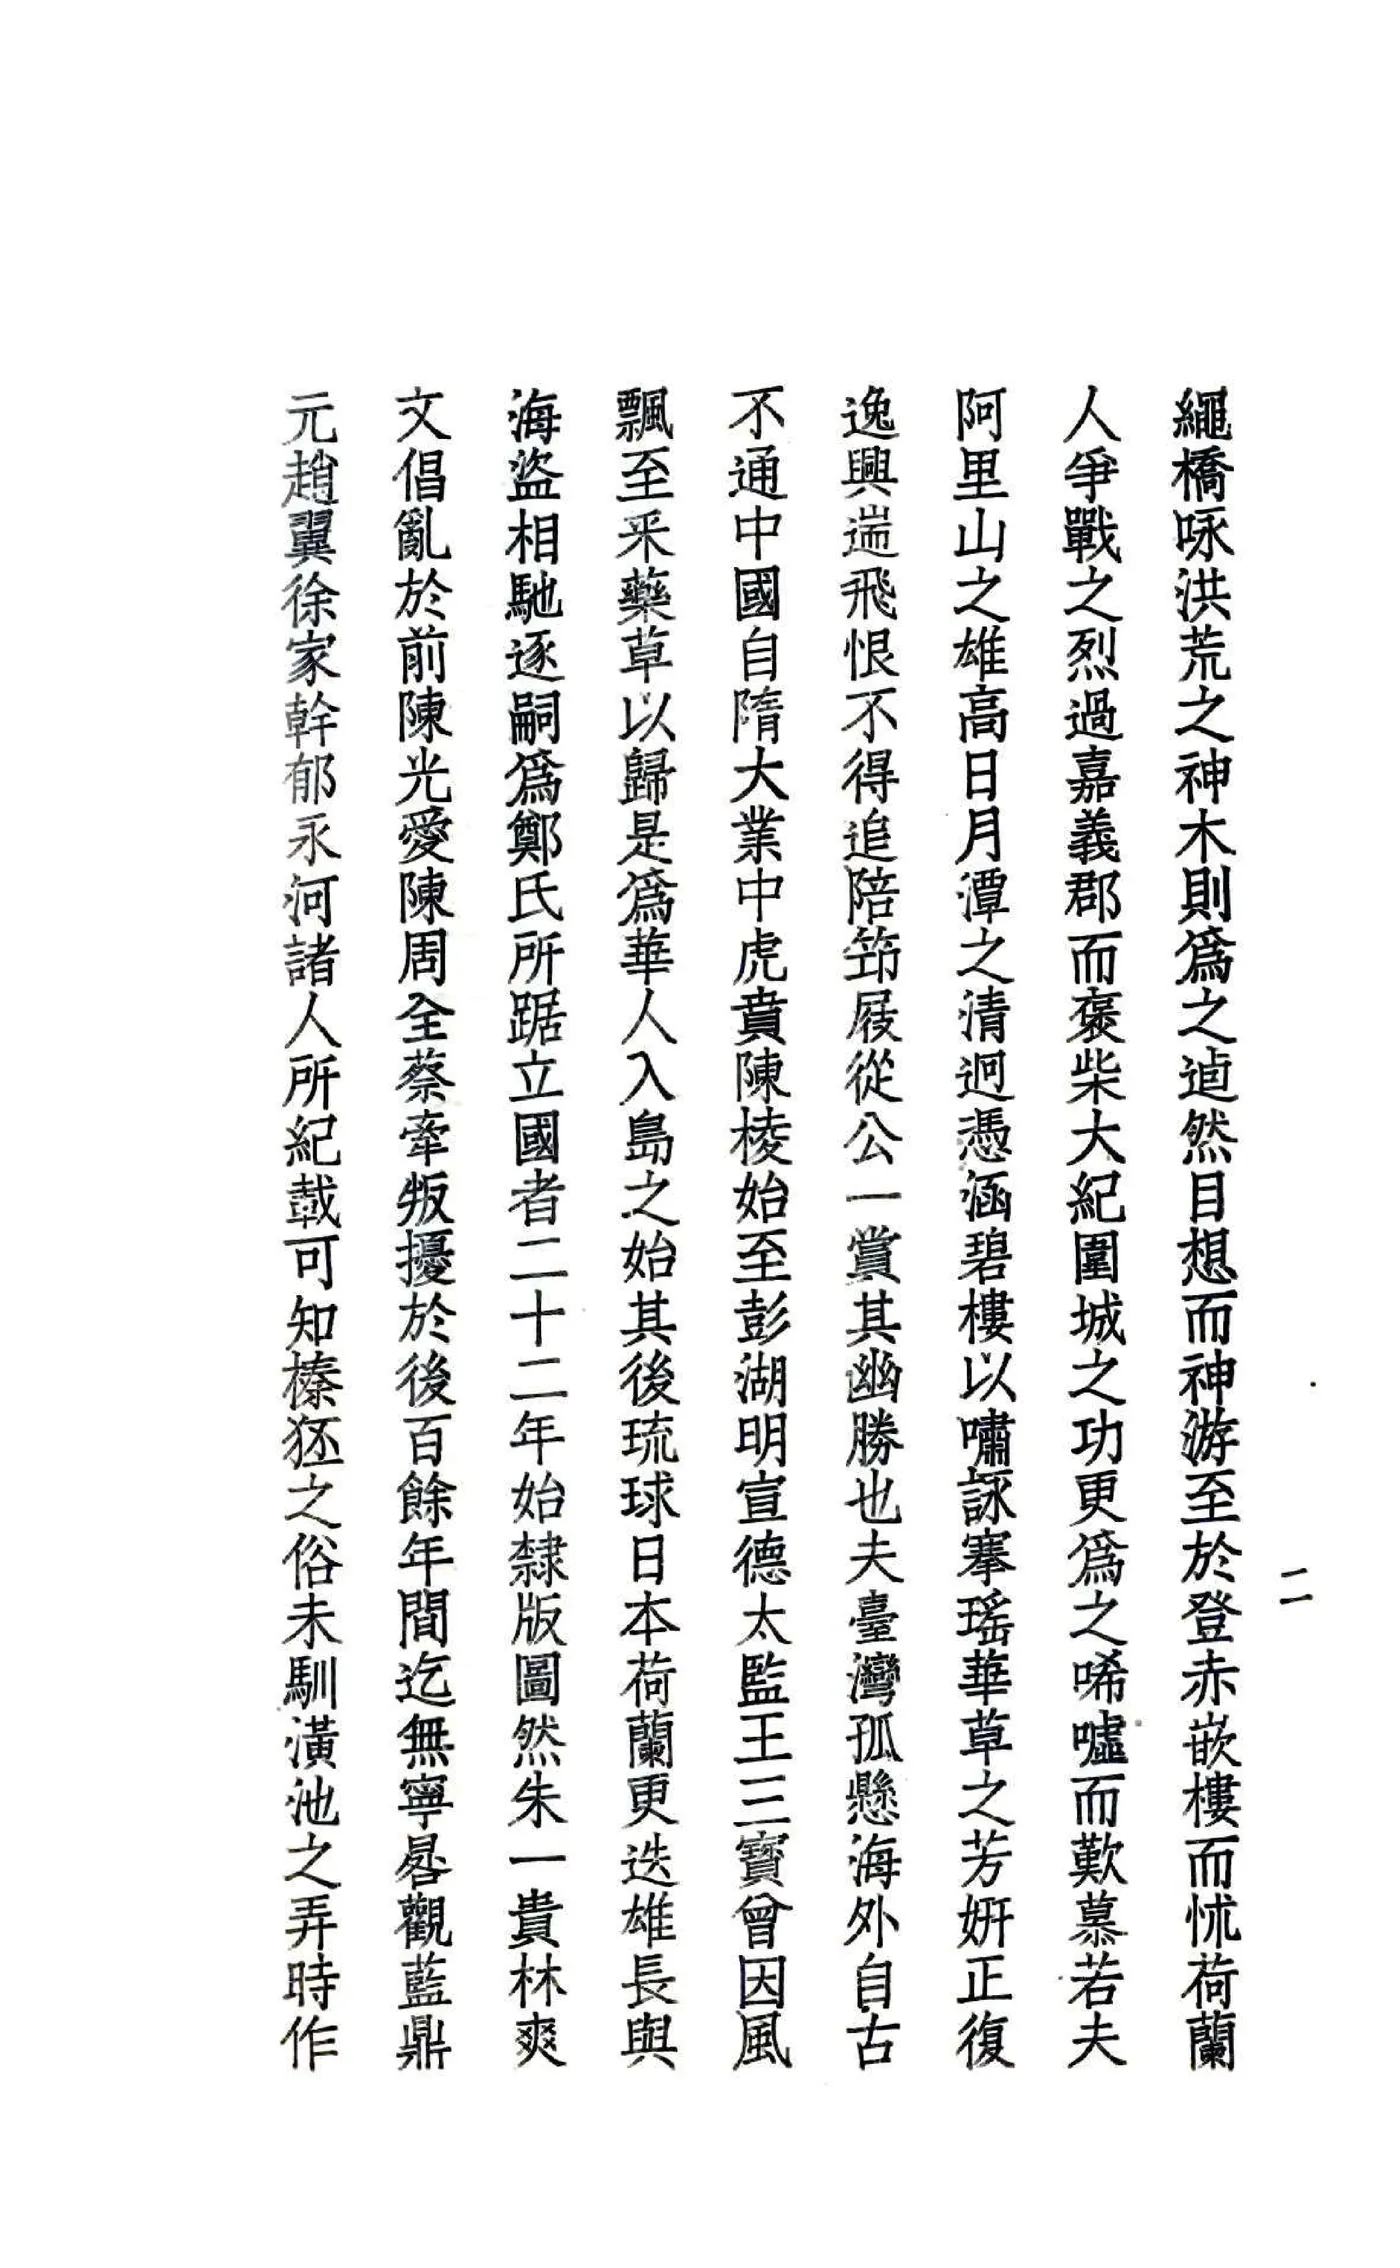 繩橋咏洪荒之神木則爲之逌然目想而神游至於登赤嵌樓而怵荷蘭
人爭戰之烈過嘉義郡而褒柴大紀圍城之功更爲之唏噓而歎慕若夫
阿里山之雄高日月潭之清迥憑涵碧樓以嘯詠搴瑤華草之芳妍正復
逸興遄飛恨不得追陪笻屐從公一賞其幽勝也夫臺灣孤懸海外自古
不通中國自隋大業中虎賁陳棱始至彭湖明宣德太監王三寶曾因風
飄至釆藥草以歸是爲華人入島之始其後琉球日本荷蘭更迭雄長與
海盜相馳逐嗣爲鄭氏所踞立國者二十二年始隸版圖然朱一貴林爽
文倡亂於前陳光愛陳周全蔡牽叛擾於後百餘年間迄無寧晷觀藍鼎
元趙翼徐家幹郁永河諸人所紀載可知榛狉之俗未馴潢池之弄時作
二